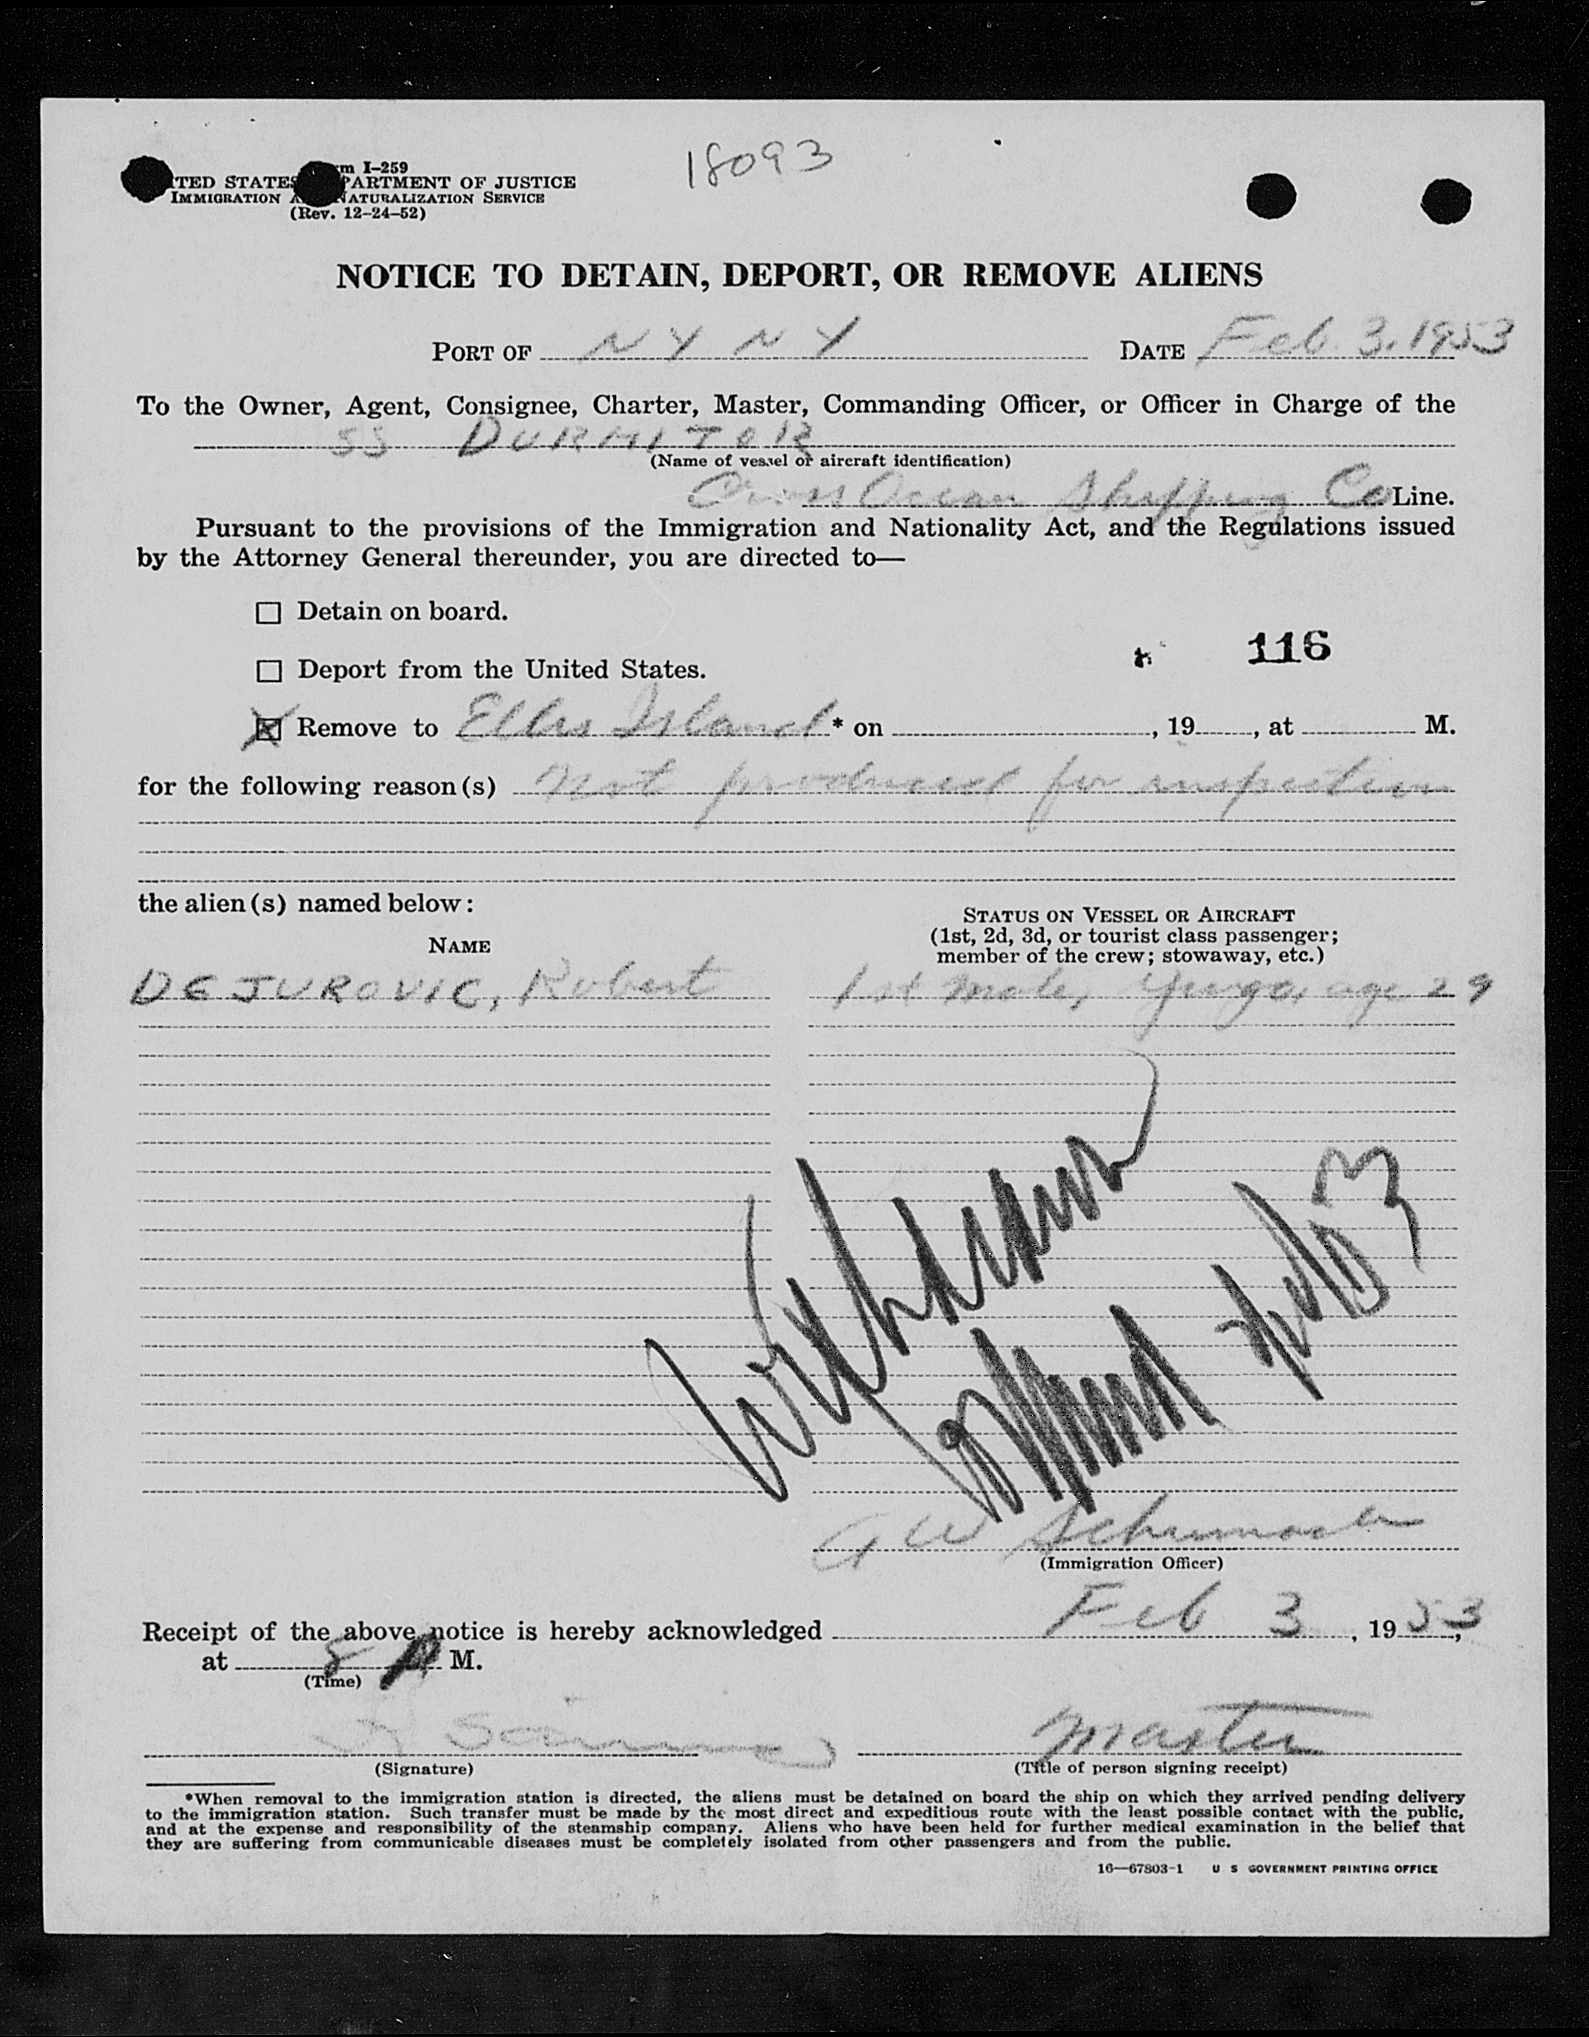 18093
m I-259
TED STATES PARTMENT OF JUSTICE
IMMIGRATION A NATURALIZATION SERVICE
(Rev. 12-24-52)
NOTICE TO DETAIN, DEPORT, OR REMOVE ALIENS
PORT OF N Y N Y DATE Feb. 3. 1953
To the Owner, Agent, Consignee, Charter, Master, Commanding Officer, or Officer in Charge of the
SS DURMITOR
(Name of vessel or aircraft identification)
Cross Ocean Shipping Co Line.
Pursuant to the provisions of the Immigration and Nationality Act, and the Regulations issued
by the Attorney General thereunder, you are directed to—
Detain on board.
116
Deport from the United States.
Remove to Ellis Island * on , 19 , at M.
for the following reason(s) Not produced for inspection
the alien(s) named below:
STATUS ON VESSEL OR AIRCRAFT
(1st, 2d, 3d, or tourist class passenger;
member of the crew; stowaway, etc.)
NAME
DEJUROVIC, Robert 1st Mate, Yugo, age 29
A W Schumacher
(Immigration Officer)
Receipt of the above notice is hereby acknowledged Feb 3, 1953,
at 8 P M.
(Time)
Master
(Signature) (Title of person signing receipt)
*When removal to the immigration station is directed, the aliens must be detained on board the ship on which they arrived pending delivery
to the immigration station. Such transfer must be made by the most direct and expeditious route with the least possible contact with the public,
and at the expense and responsibility of the steamship company. Aliens who have been held for further medical examination in the belief that
they are suffering from communicable diseases must be completely isolated from other passengers and from the public.
16—67803-1 U S GOVERNMENT PRINTING OFFICE